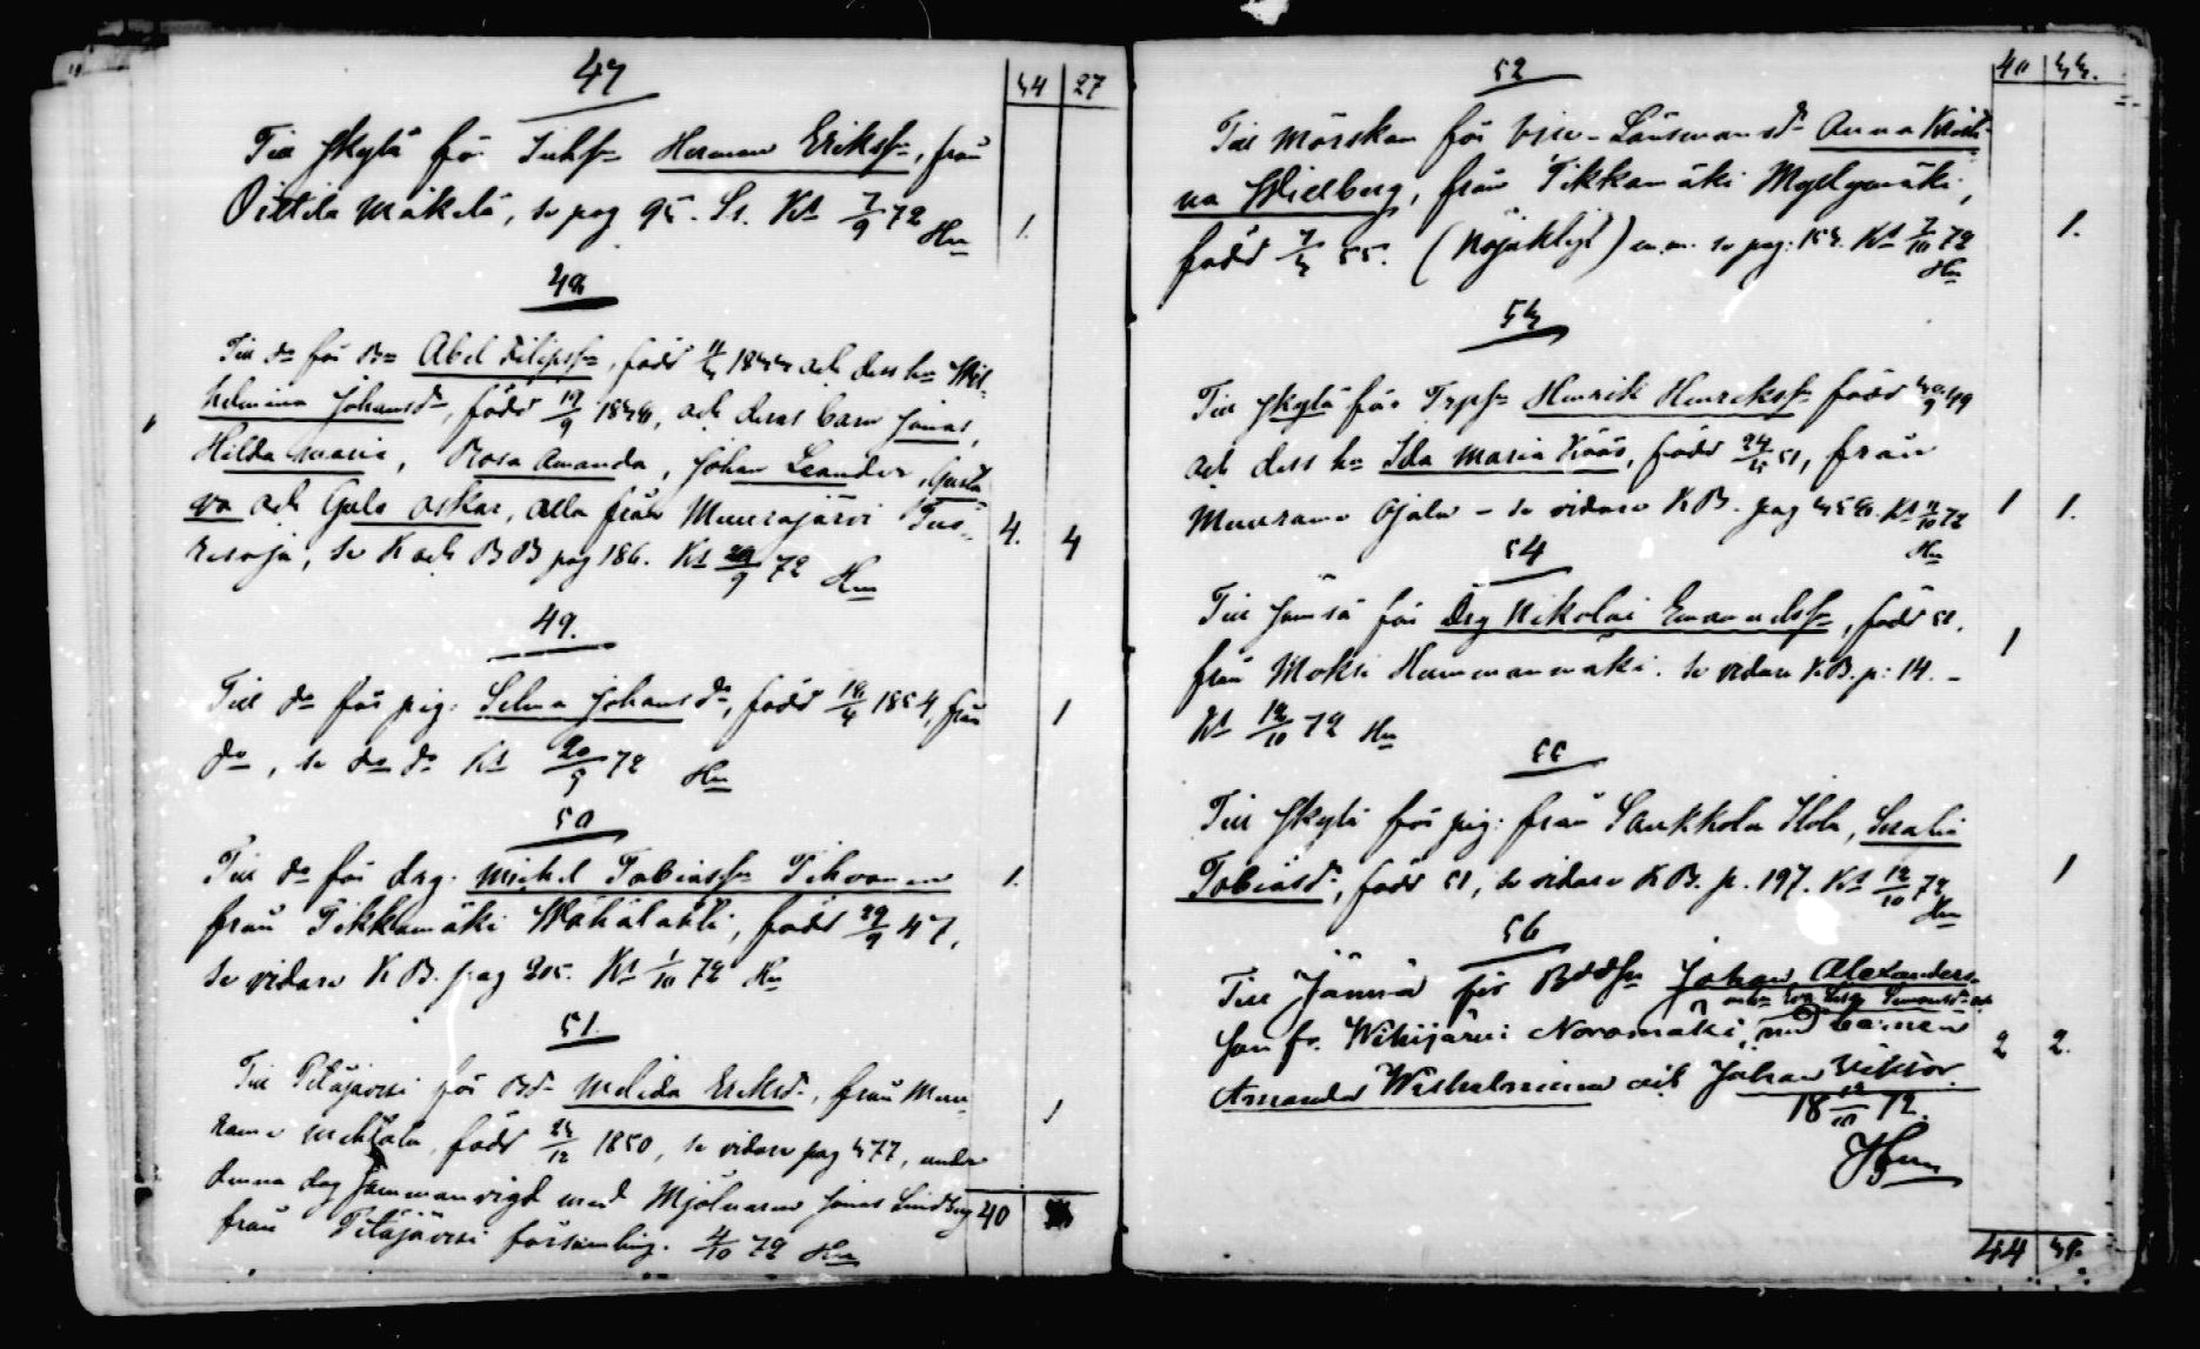 47
34 27
Till Jkylä för Inhsn Herman Eriksson, från
Oittila Mäkelä, se pag 95. S. Kst 7/9 72 Hn 1.
48
Till do för Bn Abel Filipsson, född 11/3 1833 och dess h. Wil-
helmina Johansdr, född 19/9 1838, och deras barn Jonas,
Hilda Maria, Rosa Amanda, Johan Leander, Gusta-
va och Gals Oskar, alla från Muurajärvi Tus-
resoja, se K och BB pag 186. Kst 20/9 72 Hn 4. 4
49.
Till do för pig: Selma Johansdr, född 18/4 1854, från 1
do, se do do Kst 20/9 72 Hn
50
Till do för drg. Michel Tobiasson Tihvonen 1.
från Tikkamäki Wähälahti, född 29/9 47,
se vidare KB. pag 205. Kst 1/10 72 Hn
51.
Till Petäjävesi för Bdr Melida Eriksdr, från Muu- 1
rame Mehtola, född 23/12 1850, se vidare pag 377, under
denna dag sammanvigd med Mjölnaren Jonas Lindberg 40
från Petäjävesi församling. 4/10 72 Hn
52
40 33.
Till Mörskom för Vice-Länsmansdr Anna Kristi-
na Widberg, från Tikkamäki Myllymäki,
född 7/3 55. (Nöjaktigt) m.m. se pag: 153. Kst 7/10 72 1.
Hn
53
Till Jkylä för Trpsn Henrik Henriksson född 30/9 49
och dess h. Ida Maria Kääs, född 24/5 51, från
Muurame Ojala – se vidare KB. pag 358. Kst 11/10 72 1 1.
Hn
54
Till Jämsä för Drg Nikolai Emanuelsson, född 51,
från Moksi Hammanmäki. se vidare KB. p: 14. – 1
Kst 12/10 72 Hn
55
Till Jkylä för pig: från Saukkola Ilola, Serafia
Tobiasdr, född 51, se vidare KB. p. 197. Kst 12/10 72 1
Hn
56
Till Jämsä för Bddsn Johan Alexanders-
och hu Eva Lisa Simonsdr och
son fr. Wihijärvi Noromäki, med barnen
Amanda Wilhelmina och Johan Viktor. 2 2.
18 12/10 72.
Hn
44 38.